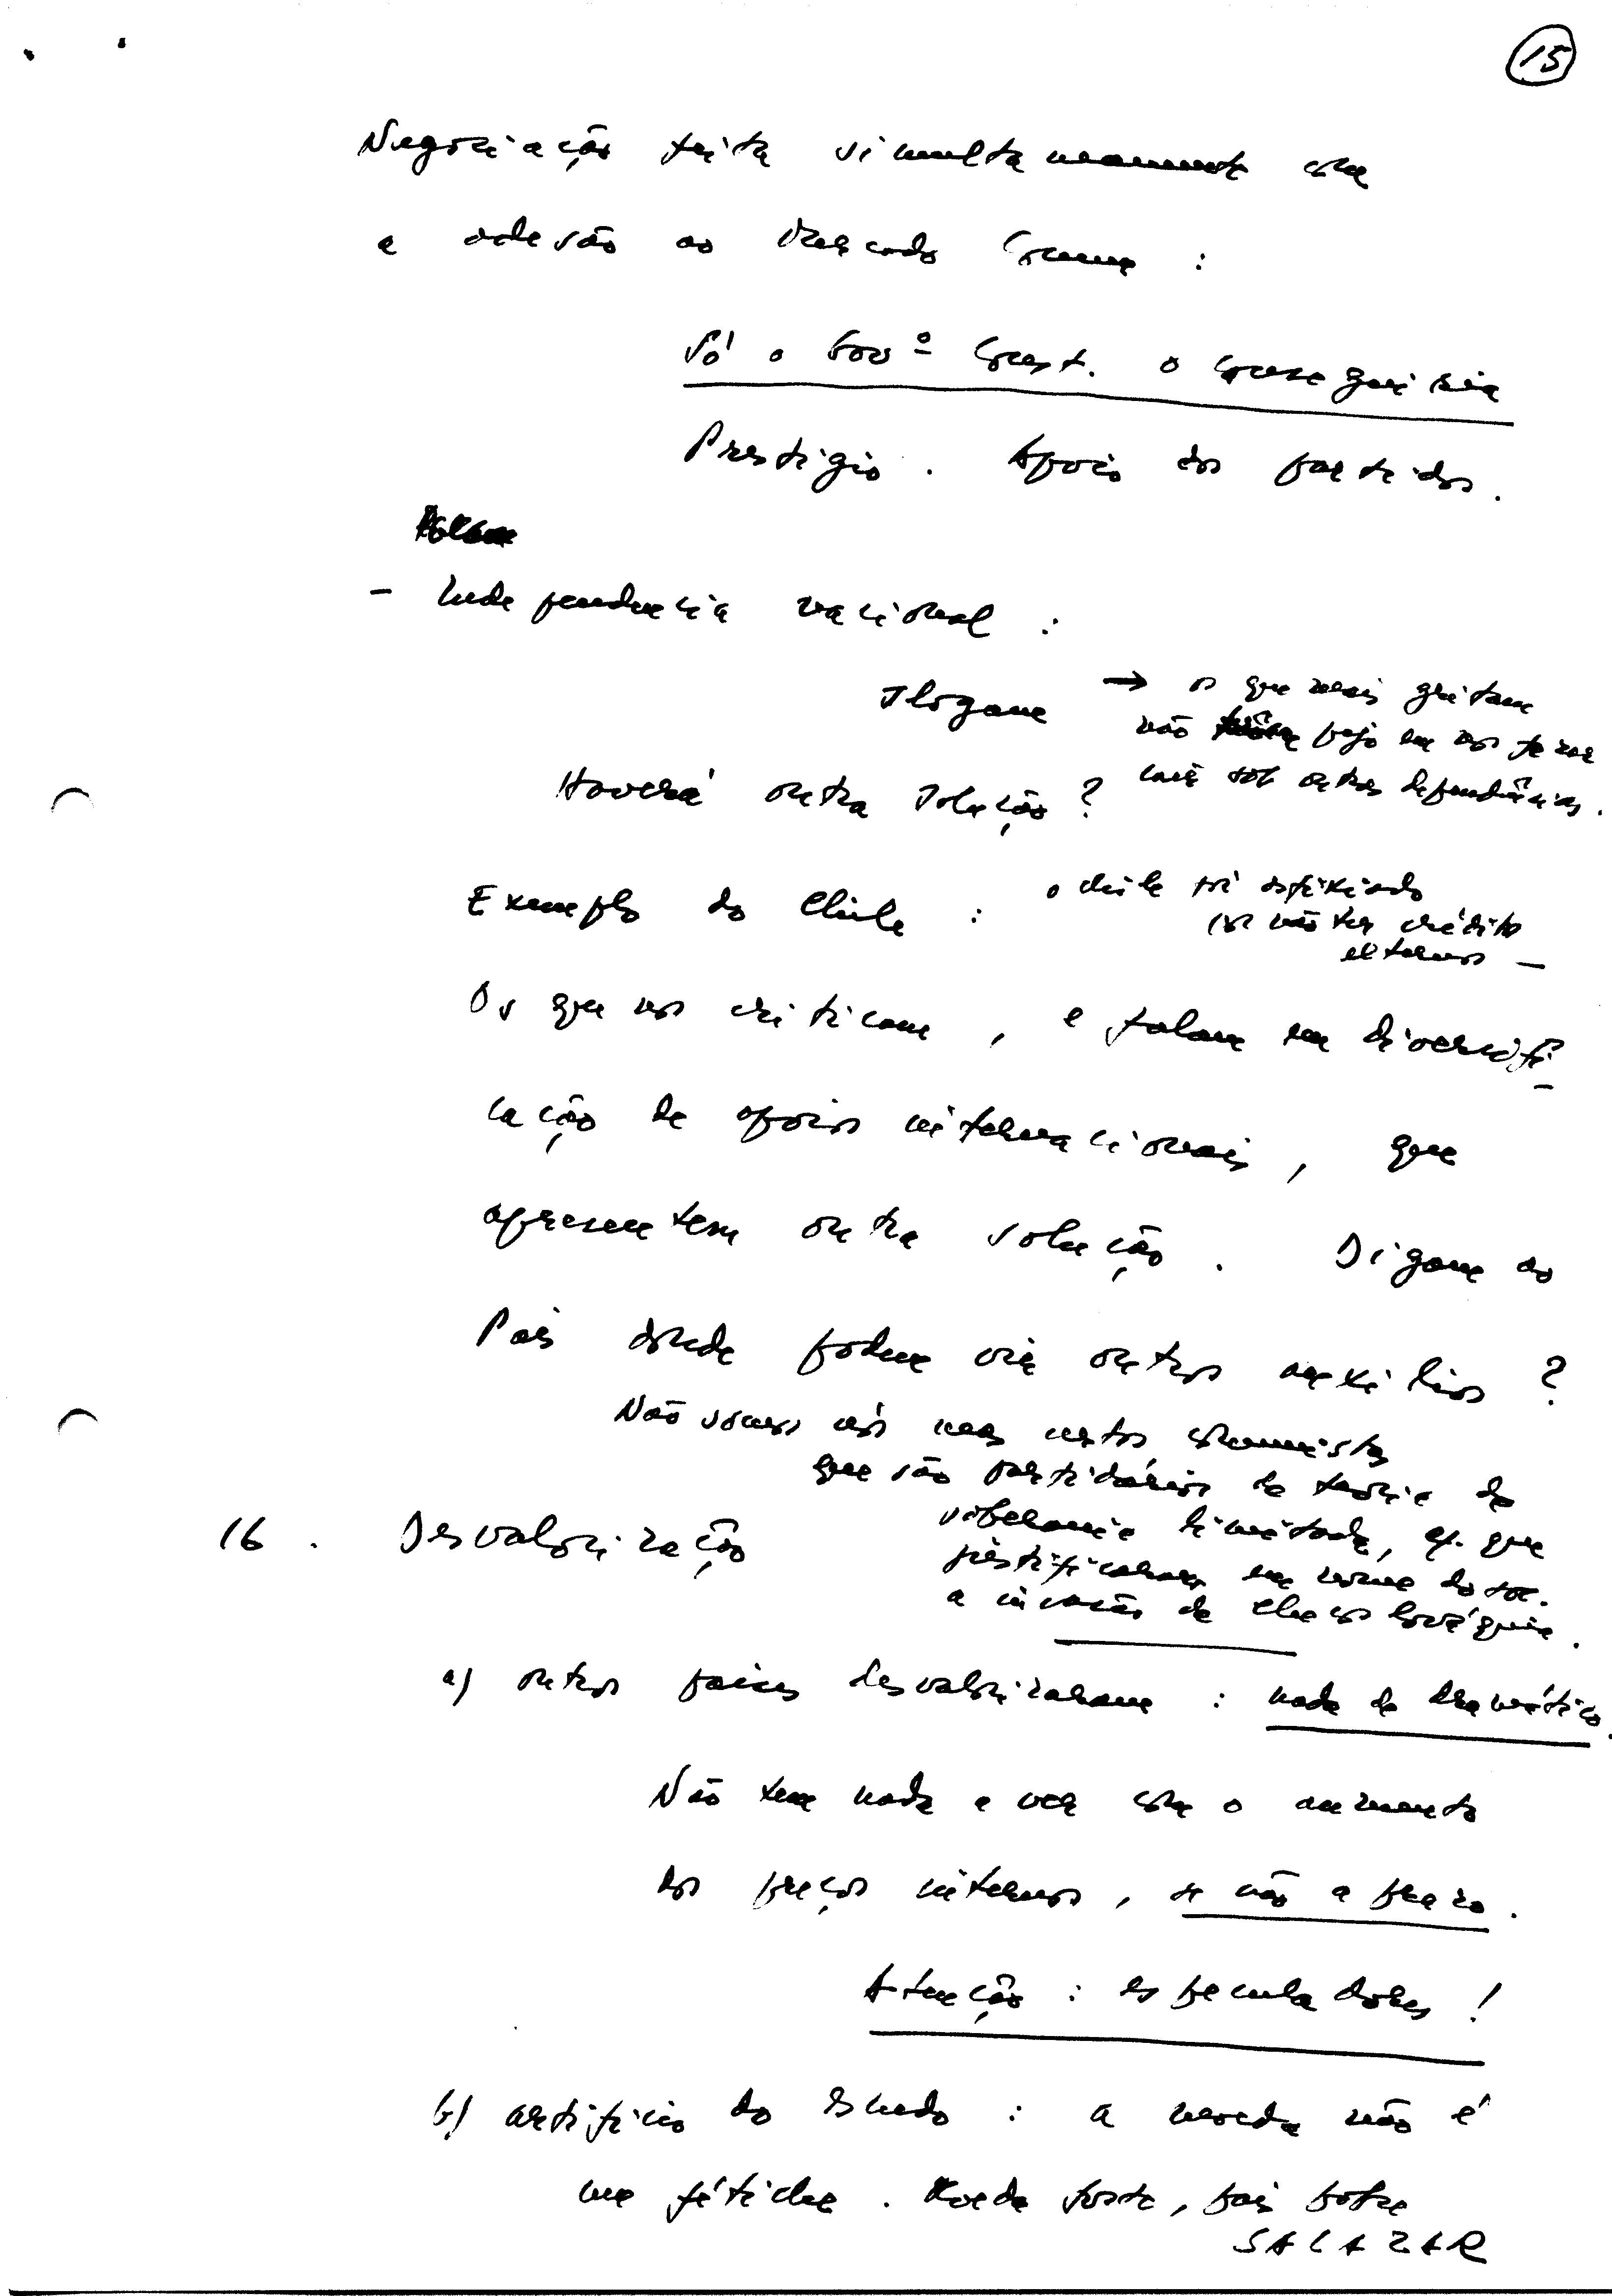 15
Negociação feita simultaneamente com
a adesão ao Mercado Comum :
Só o Govº Const. o conseguiria
Prestígio. Apoio dos partidos.
- Independência nacional :
Slogan → os que mais gritam
não pejo em nos terem
sob outras dependências.
Haverá outra solução ?
Exemplo do Chile : o Chile foi asfixiado
por não ter crédito
externo —
Os que nos criticam, e falam em diversifi-
cação de apoios internacionais, que
apresentem outra solução. Digam ao
País donde podem vir outros auxílios ?
Não somos nós mas certos comunistas
que são partidários da teoria da
soberania limitada, que
justificaram em nome do soc.
a invasão da Checoslováquia.
16. Desvalorização
a) outros países desvalorizaram : nada de dramático.
Não tem nada a ver com o aumento
dos preços internos, se não a prazo.
Atenção : especuladores !
b) artifício do Escudo : a moeda não é
um fétiche. Moeda forte, país pobre
SALAZAR